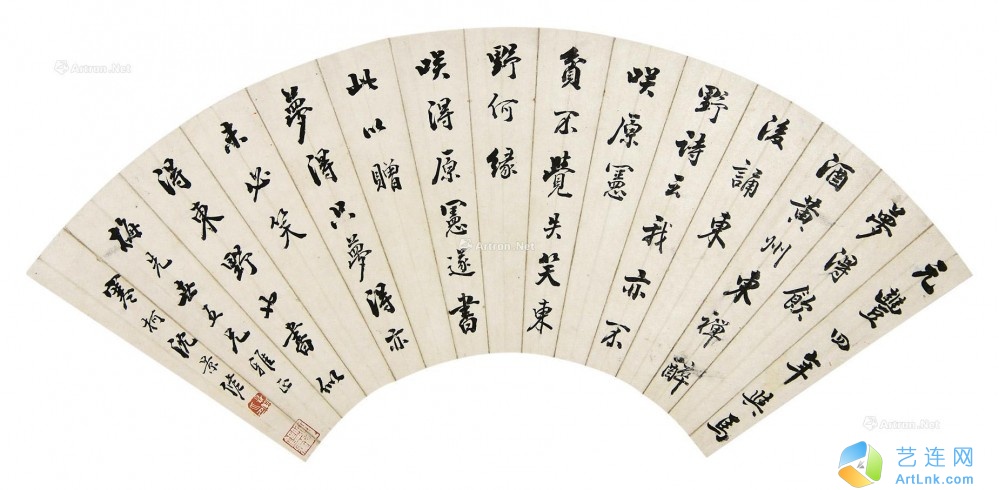 元豐四年與馬
夢得飲
酒黃州東禪醉
後誦東
野詩云我亦不
咲原憲
貧不覺失笑東
野何緣
咲得原憲遂書
此以贈
夢得只夢得亦
未必笑
得東野也書似
梅先世五兄雅正
寒柯沈景修
Artron.Net
Artron.Net
Artron.Net
艺连网
ArtLnk.com